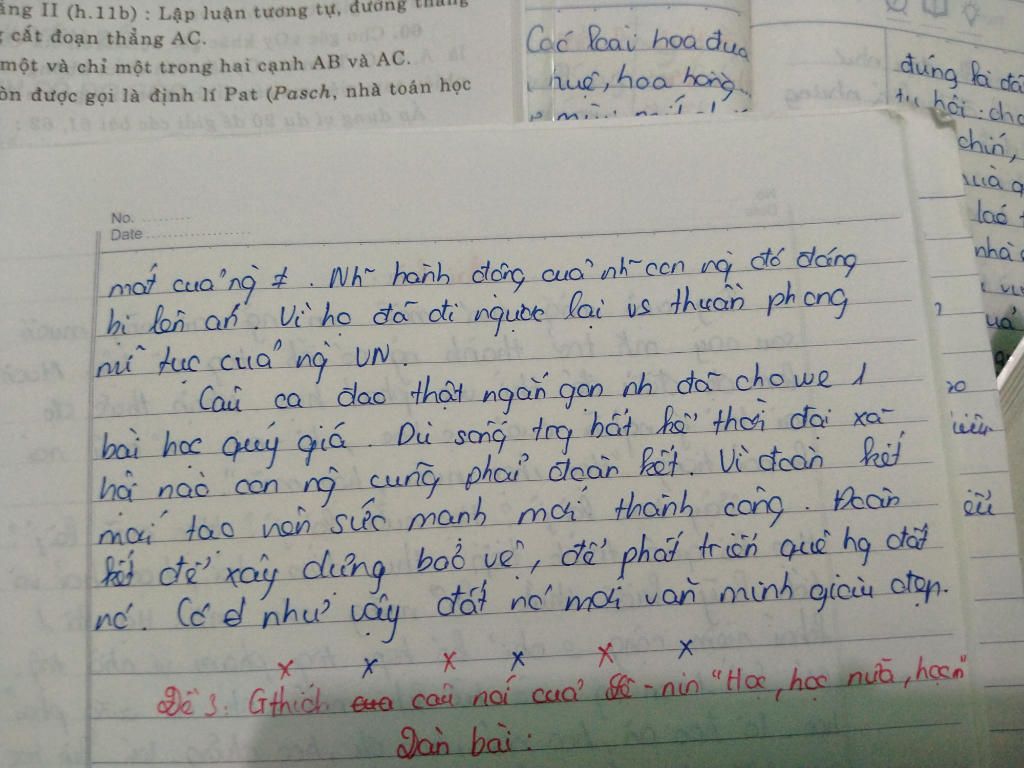 ẳng II (h.11b) : Lập luận tương tự, đường thẳng
g cắt đoạn thẳng AC.
một và chỉ một trong hai cạnh AB và AC.
òn được gọi là định lí Pat (Pasch, nhà toán học
Các loài hoa đua
huệ, hoa hồng
đứng lại đã
tu hồi : cho
chín,
nhà
No.
Date
mất của ng ≠. Nh~ hành động của nh~ con ng đó đáng
bị lên án. Vì họ đã đi ngược lại vs thuần phong
mĩ tục của ng VN.
Câu ca dao thật ngắn gọn nh đã cho we 1
bài học quý giá. Dù sống trg bất kể thời đại xã
hội nào con ng cũng phải đoàn kết. Vì đoàn kết
mới tạo nên sức mạnh mới thành công. Đoàn
kết để xây dựng bảo vệ, để phát triển quê hg đất
nc. Có đ như vậy đất nc mới văn minh giàu đẹp.
x x x x x x
Đề 3: Gthích câu nói của Lê-nin "Học, học nữa, học n"
Dàn bài :